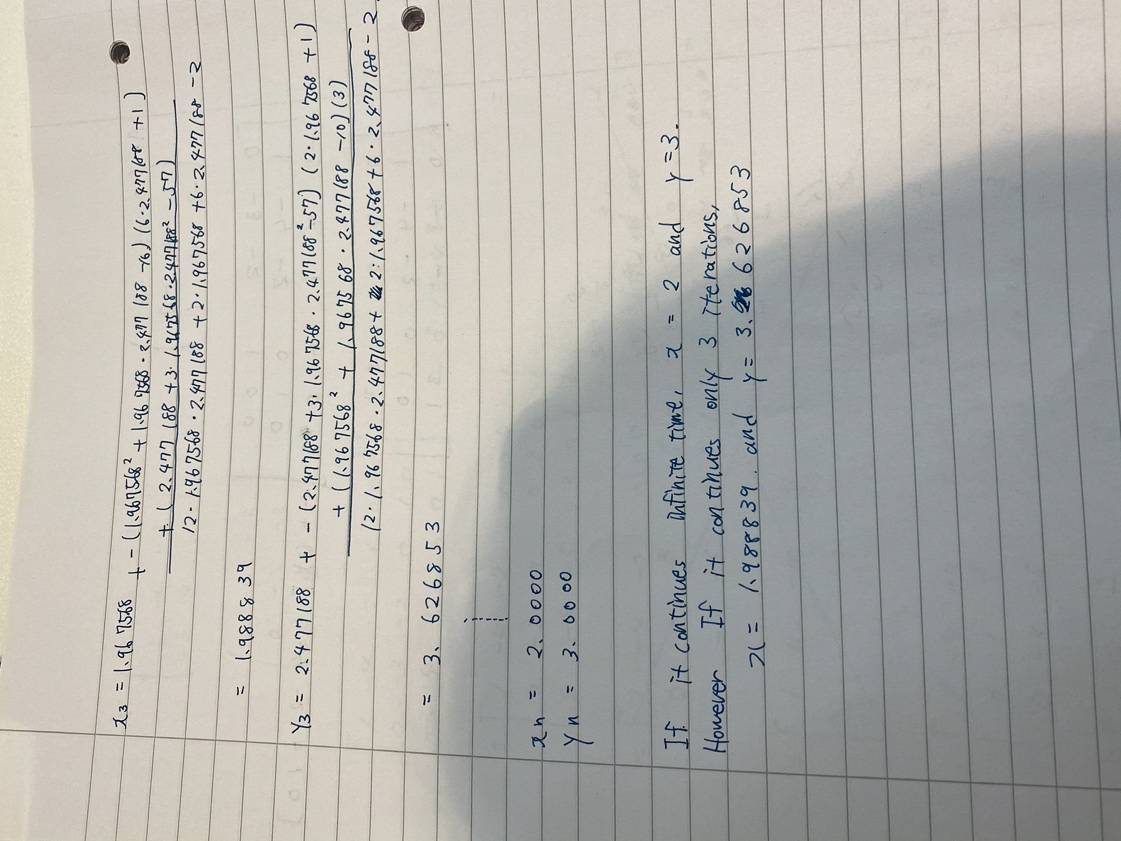 x₃ = 1.967568 + -(1.967568² + 1.967568 · 2.477188 - 10) (6 · 2.477188 + 1)
+ (2.477188 + 3 · 1.967568 · 2.477188² - 57)
12 · 1.967568 · 2.477188 + 2 · 1.967568 + 6 · 2.477188 - 2
= 1.988839
y₃ = 2.477188 + -(2.477188 + 3 · 1.967568 · 2.477188² - 57) (2 · 1.967568 + 1)
+ (1.967568² + 1.967568 · 2.477188 - 10) (3)
12 · 1.967568 · 2.477188 + 2 · 1.967568 + 6 · 2.477188 - 2
= 3.626853
xn = 2.0000
yn = 3.0000
If it continues infinite time, x = 2 and y = 3.
However If it continues only 3 iterations,
x = 1.988839 and y = 3.626853